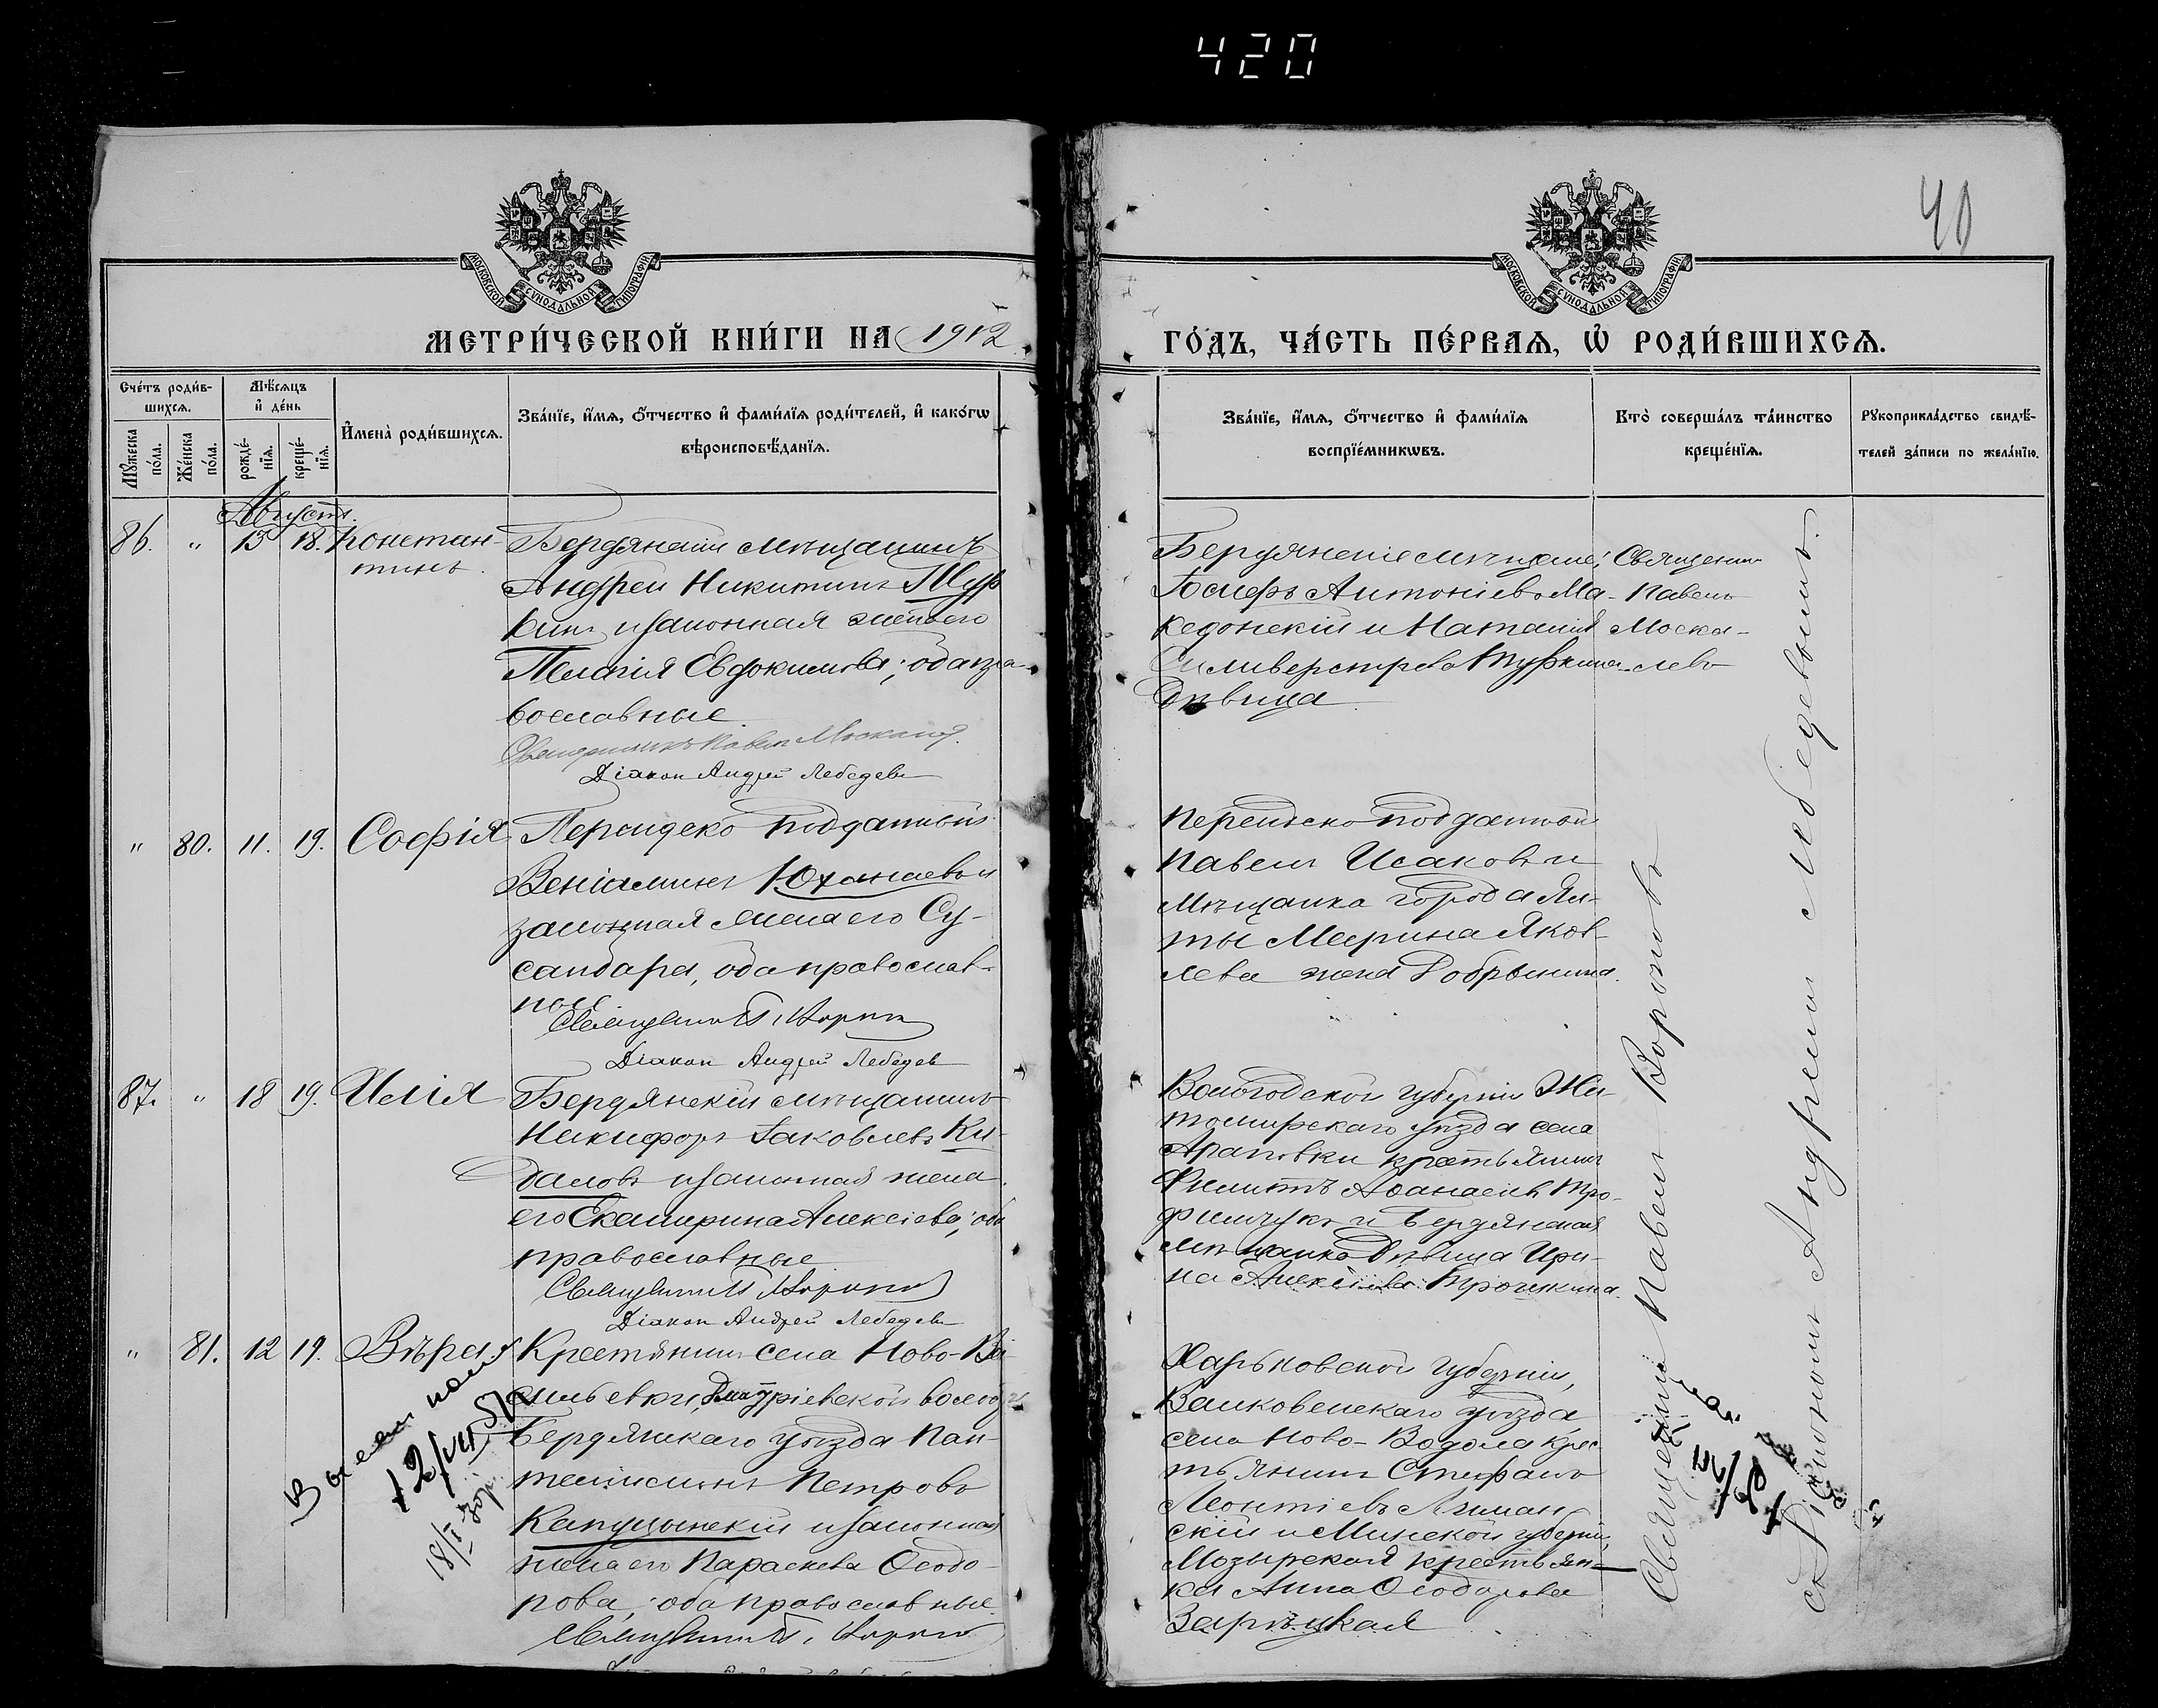 420
40
МОСКОВСКОЙ СУНОДАЛЬНОЙ ТИПОГРАФІИ
МОСКОВСКОЙ СУНОДАЛЬНОЙ ТИПОГРАФІИ
МЕТРИ́ЧЕСКОЙ КНИ́ГИ НА 1912
ГО́ДЪ, ЧА́СТЬ ПЕ́РВАѦ, Ѡ҆ РОДИ́ВШИХСѦ.
Сче́тъ роди́в-
шихсѧ.
Мѣ́сѧцъ
и҆ де́нь
Мꙋ́жеска
по́ла.
Же́нска
по́ла.
рожде́-
нїѧ.
креще́-
нїѧ.
И҆мена̀ роди́вшихсѧ.
Зва́нїе, и҆́мѧ, ѻ҆́тчество и҆ фами́лїѧ роди́телей, и҆ како́гѡ
вѣроисповѣ́данїѧ.
Зва́нїе, и҆́мѧ, ѻ҆́тчество и҆ фами́лїѧ
воспрїе́мникѡвъ.
Кто̀ соверша́лъ та́инство
креще́нїѧ.
Рꙋкоприкла́дство свидѣ́-
телей за́писи по жела́нїю.
Августъ.
86. " 15 18. Констан-
тинъ.
Бердянскій мѣщанинъ
Андрей Никитинъ
и законная жена его
Пелагія Евдокимова; оба пра-
вославные.
Священникъ Павел
Діакон Андрей Лебедевъ
Бердянскіе мѣщане:
Іосифъ Антоніевъ Ма-
кедонскій и Наталія
Силиверстрова
Дѣвица
Священникъ
Павелъ
Моска-
левъ
" 80. 11. 19. Софія
Персидско подданный
Веніаминъ Юханаевъ и
законная жена его Су-
сандара, оба православ-
ные.
Священникъ П.
Діакон Андрей Лебедев
Персидско подданной
Павелъ Исаковъ и
мѣщанка города Ял-
ты Марина Яков-
лева жена Добрынина.
87. " 18 19. Илія
Бердянскій мѣщанинъ
Никифоръ Іаковлевъ Ки-
даловъ и законная жена
его Екатерина Алексіева; оба
православные
Священникъ
Діакон Андрей Лебедевъ
губерніи Жи-
томирскаго уѣзда села
Араповки крестьянинъ
Филиппъ Аѳанасіевъ Тро-
фимчукъ и Бердянская
мѣщанка Дѣвица Ири-
на Алексіева
" 81. 12 19. Вѣра
Крестьянинъ села Ново-Ва-
сильевки, Дмитріевской волости
Бердянскаго уѣзда Пан-
телеимонъ Петровъ
и законная
жена его Параскева Ѳеодо-
рова, оба православные.
Священникъ П.
Харьковской губерніи,
Валковскаго уѣзда
села Ново-Водолага крес-
тьянинъ Стефанъ
Леонтіевъ Лиман-
скій и Минской губерніи,
Мозырская крестьян-
ка Анна Ѳеодорова
Зарѣцкая
Священникъ Павелъ Вороновъ
съ Діакономъ Андреемъ Лебедевымъ.